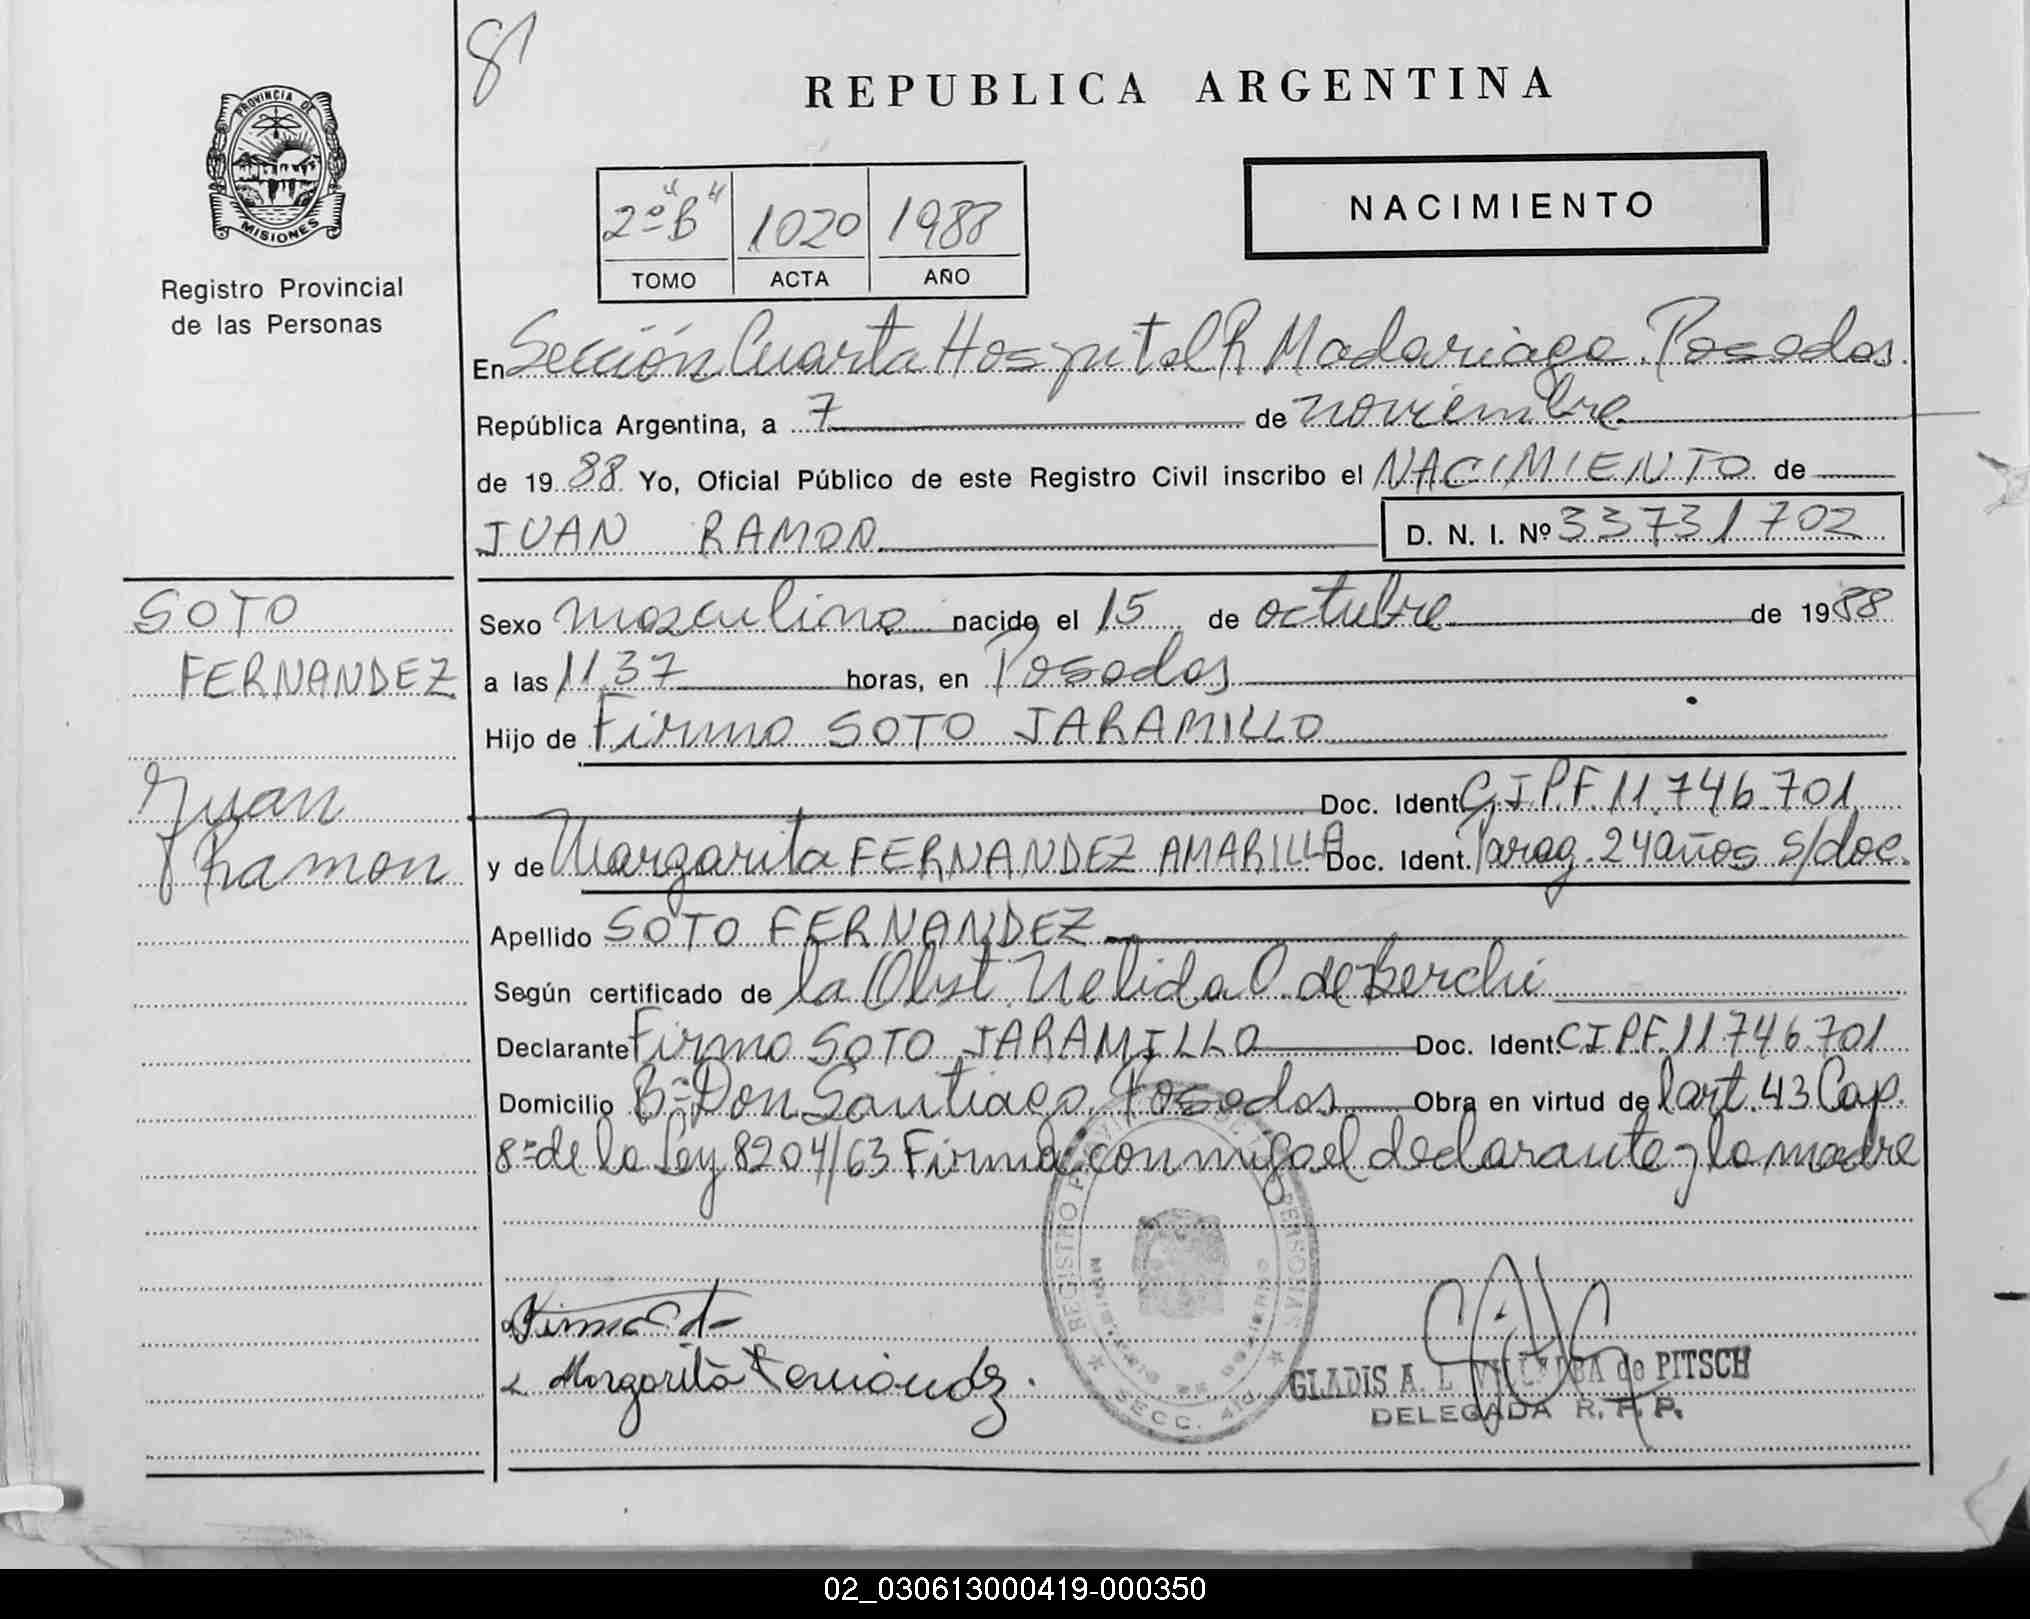 81
PROVINCIA DE
MISIONES
Registro Provincial
de las Personas
REPUBLICA ARGENTINA
2º "B" 1020 1988
TOMO ACTA AÑO
NACIMIENTO
En Sección Cuarta Hospital R Madariaga. Posadas.
República Argentina, a 7 de noviembre
de 1988 Yo, Oficial Público de este Registro Civil inscribo el NACIMIENTO de
JUAN RAMON D. N. I. Nº 33731702
SOTO
FERNANDEZ
Juan
Ramon
Sexo masculino nacido el 15 de octubre de 1988
a las 11,37 horas, en Posadas
Hijo de Firmo SOTO JARAMILLO
Doc. Ident. C.I.P.F. 11.746.701
y de Margarita FERNANDEZ AMARILLA Doc. Ident. Parag. 24 años s/doc.
Apellido SOTO FERNANDEZ
Según certificado de la Obst. Nelida O. de Berchi
Declarante Firmo SOTO JARAMILLO Doc. Ident. C.I.P.F. 11746.701
Domicilio Bº Don Santiago. Posadas Obra en virtud de l art. 43 Cap.
8º de la Ley 8204/63 Firma conmigo el declarante y la madre
REGISTRO PROVINCIAL DE LAS PERSONAS
MINISTERIO DE GOBIERNO
SECC. 4ta
Margarita Fernández.
GLADIS A. L. VILLALBA de PITSCH
DELEGADA R. P. P.
02_030613000419-000350